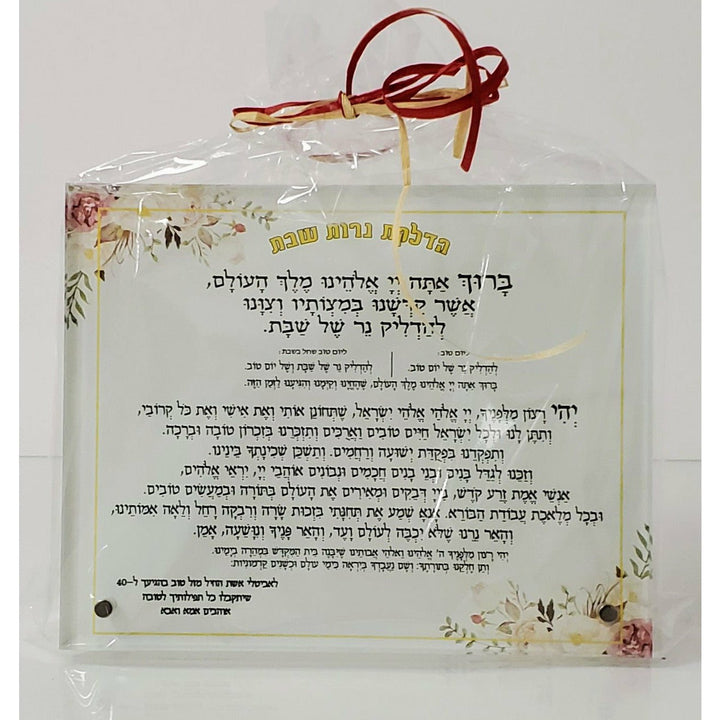 הדלקת נרות שבת
בָּרוּךְ אַתָּה יְיָ אֱלֹהֵינוּ מֶלֶךְ הָעוֹלָם,
אֲשֶׁר קִדְּשָׁנוּ בְּמִצְוֹתָיו וְצִוָּנוּ
לְהַדְלִיק נֵר שֶׁל שַׁבָּת.
ליום טוב: ליום טוב שחל בשבת:
לְהַדְלִיק נֵר שֶׁל יוֹם טוֹב. לְהַדְלִיק נֵר שֶׁל שַׁבָּת וְשֶׁל יוֹם טוֹב.
בָּרוּךְ אַתָּה יְיָ אֱלֹהֵינוּ מֶלֶךְ הָעוֹלָם, שֶׁהֶחֱיָנוּ וְקִיְּמָנוּ וְהִגִּיעָנוּ לַזְּמַן הַזֶּה.
יְהִי רָצוֹן מִלְּפָנֶיךָ, יְיָ אֱלֹהַי אֱלֹהֵי יִשְׂרָאֵל, שֶׁתְּחוֹנֵן אוֹתִי וְאֶת אִישִׁי וְאֶת כֹּל קְרוֹבַי,
וְתִתֵּן לָנוּ וּלְכָל יִשְׂרָאֵל חַיִּים טוֹבִים וַאֲרֻכִּים וְתִזְכְּרֵנוּ בְּזִכְרוֹן טוֹבָה וּבְרָכָה.
וְתִפְקְדֵנוּ בִּפְקֻדַּת יְשׁוּעָה וְרַחֲמִים. וְתַשְׁכֵּן שְׁכִינָתְךָ בֵּינֵינוּ.
וְזַכֵּנוּ לְגַדֵּל בָּנִים וּבְנֵי בָנִים חֲכָמִים וּנְבוֹנִים אוֹהֲבֵי יְיָ, יִרְאֵי אֱלֹהִים,
אַנְשֵׁי אֱמֶת זֶרַע קֹדֶשׁ, בַּיְיָ דְּבֵקִים וּמְאִירִים אֶת הָעוֹלָם בַּתּוֹרָה וּבְמַעֲשִׂים טוֹבִים.
וּבְכָל מְלֶאכֶת עֲבוֹדַת הַבּוֹרֵא. אָנָּא שְׁמַע אֶת תְּחִנָּתִי בִּזְכוּת שָׂרָה וְרִבְקָה רָחֵל וְלֵאָה אִמּוֹתֵינוּ,
וְהָאֵר נֵרֵנוּ שֶׁלֹּא יִכְבֶּה לְעוֹלָם וָעֶד, וְהָאֵר פָּנֶיךָ וְנִוָּשֵׁעָה, אָמֵן.
יְהִי רָצוֹן מִלְּפָנֶיךָ ה' אֱלֹהֵינוּ וֵאלֹהֵי אֲבוֹתֵינוּ שֶׁיִּבָּנֶה בֵּית הַמִּקְדָּשׁ בִּמְהֵרָה בְיָמֵינוּ.
וְתֵן חֶלְקֵנוּ בְּתוֹרָתֶךָ: וְשָׁם נַעֲבָדְךָ בְּיִרְאָה כִּימֵי עוֹלָם וּכְשָׁנִים קַדְמוֹנִיּוֹת:
לאביטלי אשת החיל מזל טוב בהגיעך ל-40
שיתקבלו כל תפילותיך לטובה
אוהבים אמא ואבא